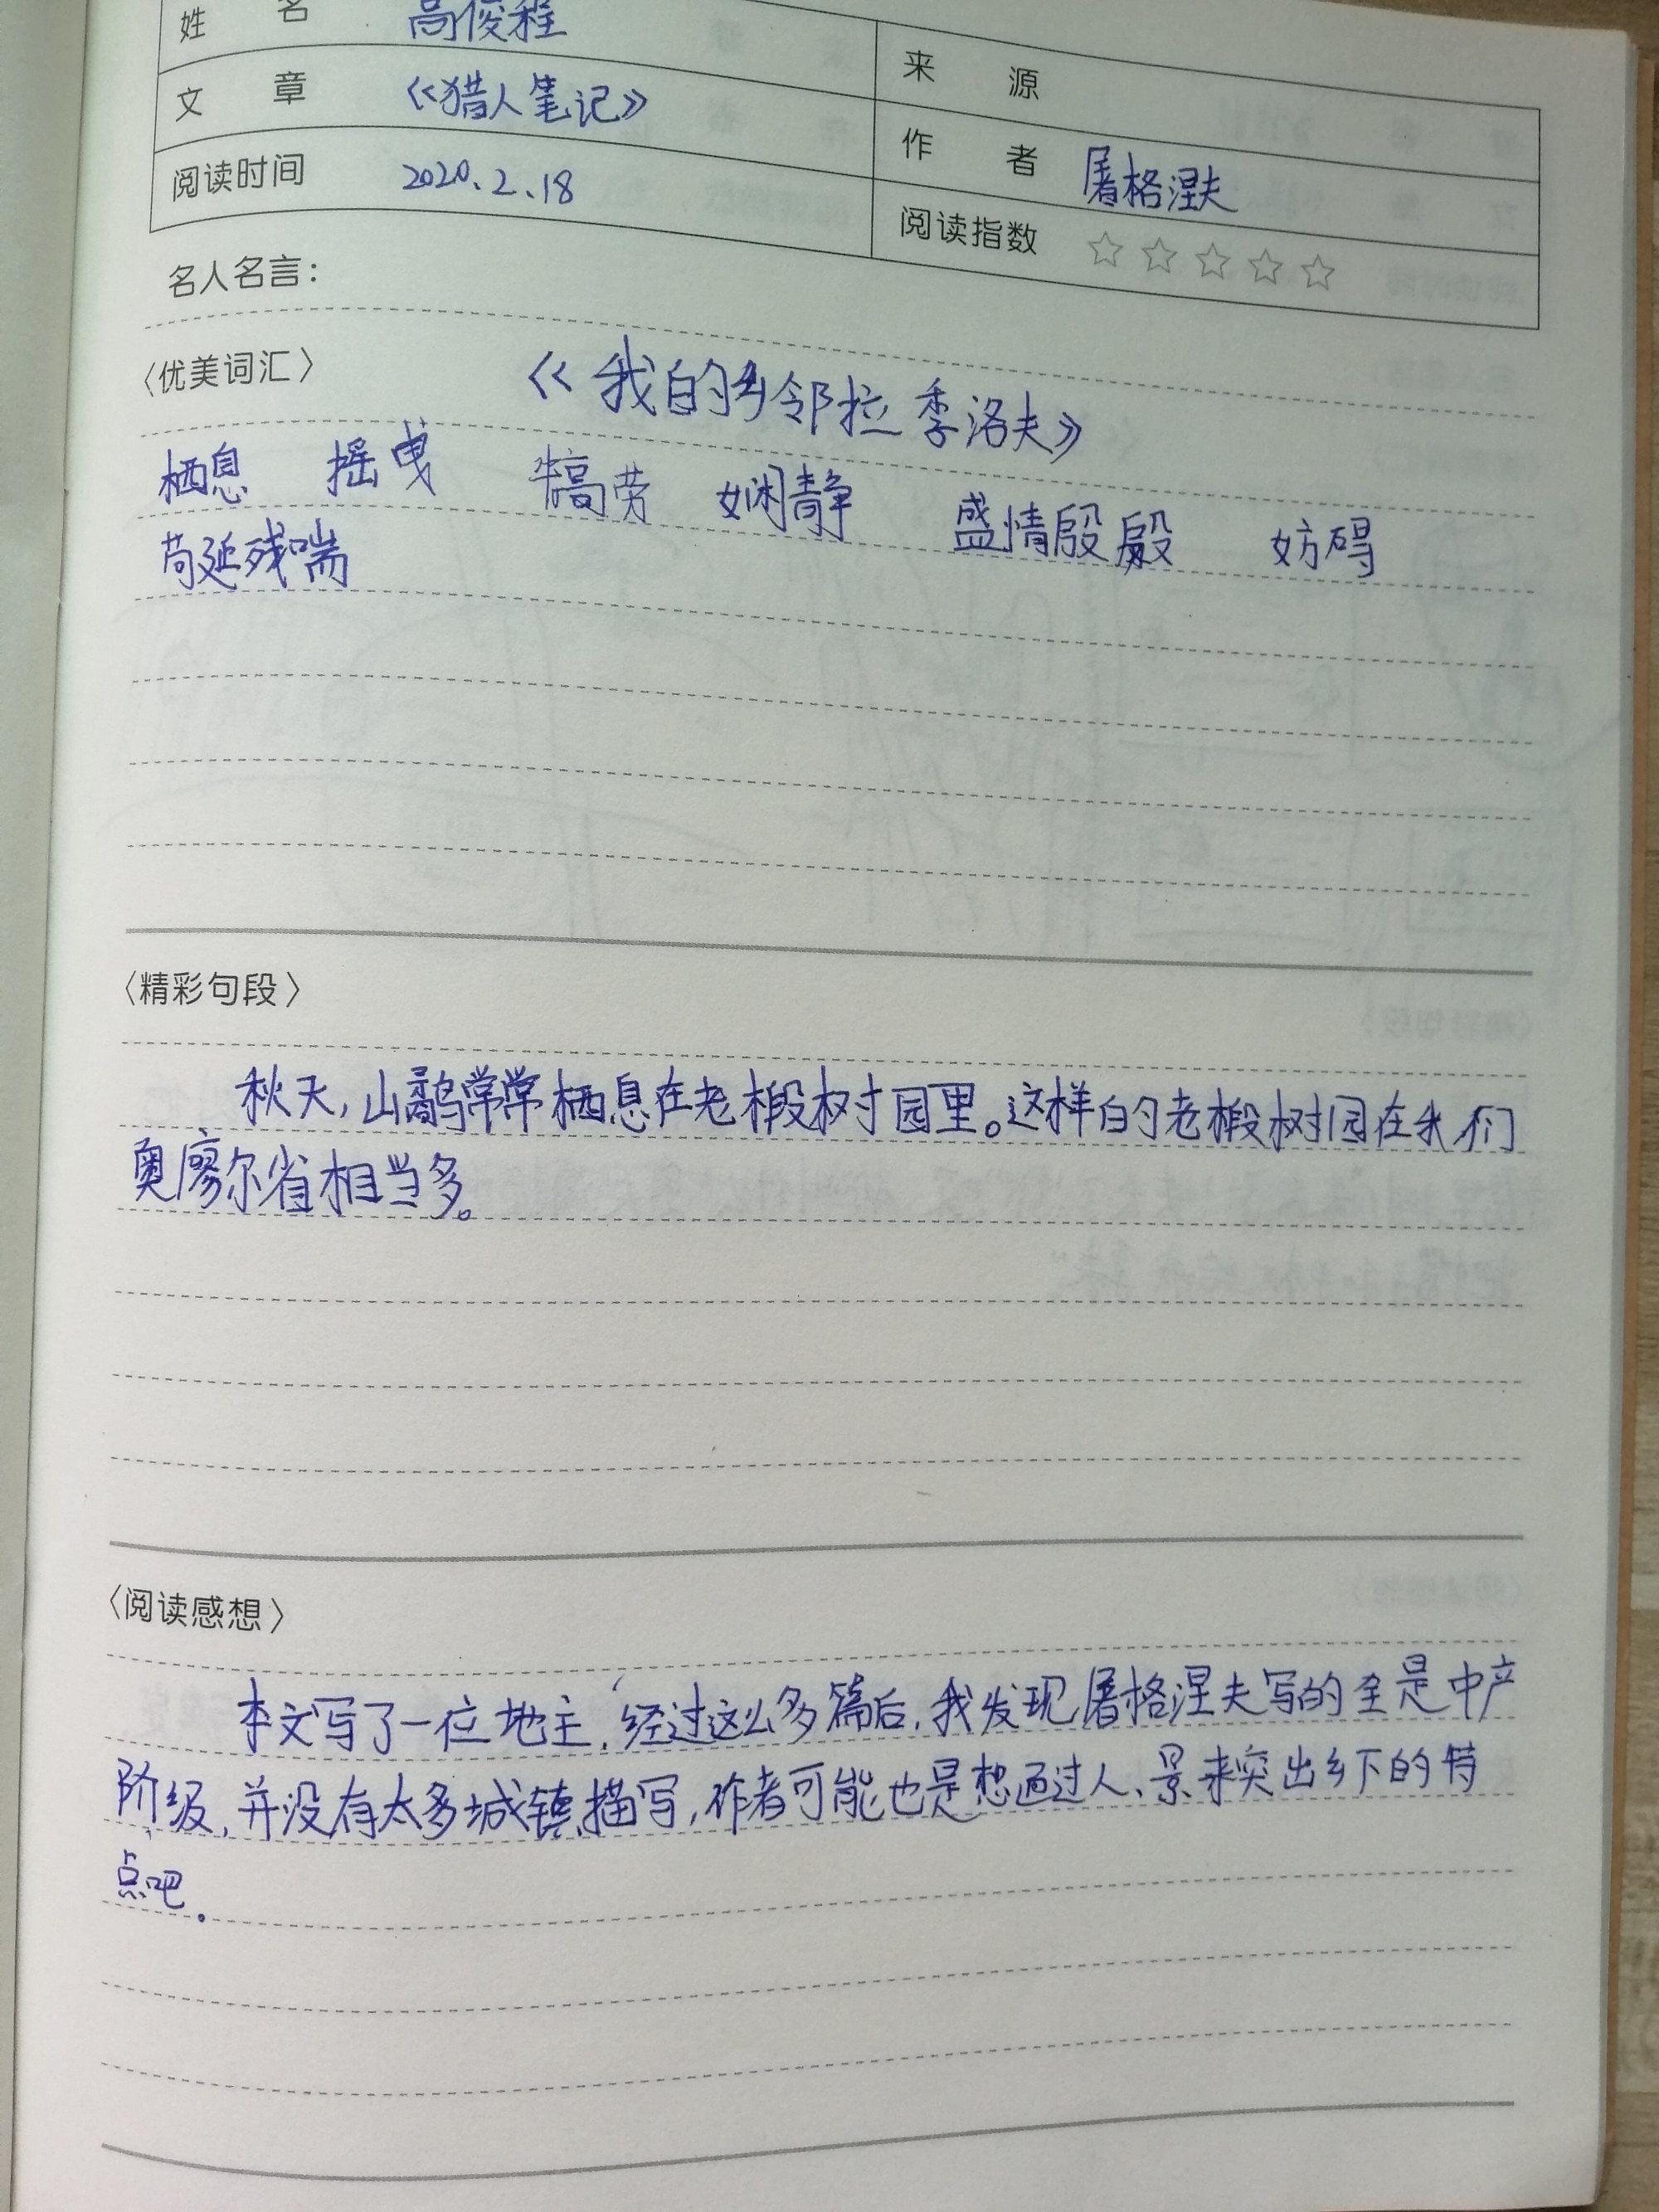 姓 名 高俊程
来 源
文 章 《猎人笔记》
作 者 屠格涅夫
阅读时间 2020.2.18
阅读指数 ☆☆☆☆☆
名人名言：
〈优美词汇〉 《我的乡邻拉季洛夫》
栖息 摇曳 犒劳 娴静 盛情殷殷 妨碍
苟延残喘
〈精彩句段〉
秋天，山鹬常常栖息在老椴树园里。这样的老椴树园在我们
奥廖尔省相当多。
〈阅读感想〉
本文写了一位地主，经过这么多篇后，我发现屠格涅夫写的全是中产
阶级，并没有太多城镇描写，作者可能也是想通过人、景来突出乡下的特
点吧。